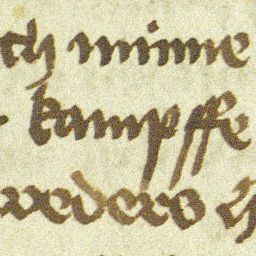 ch minne
kampffe
weders